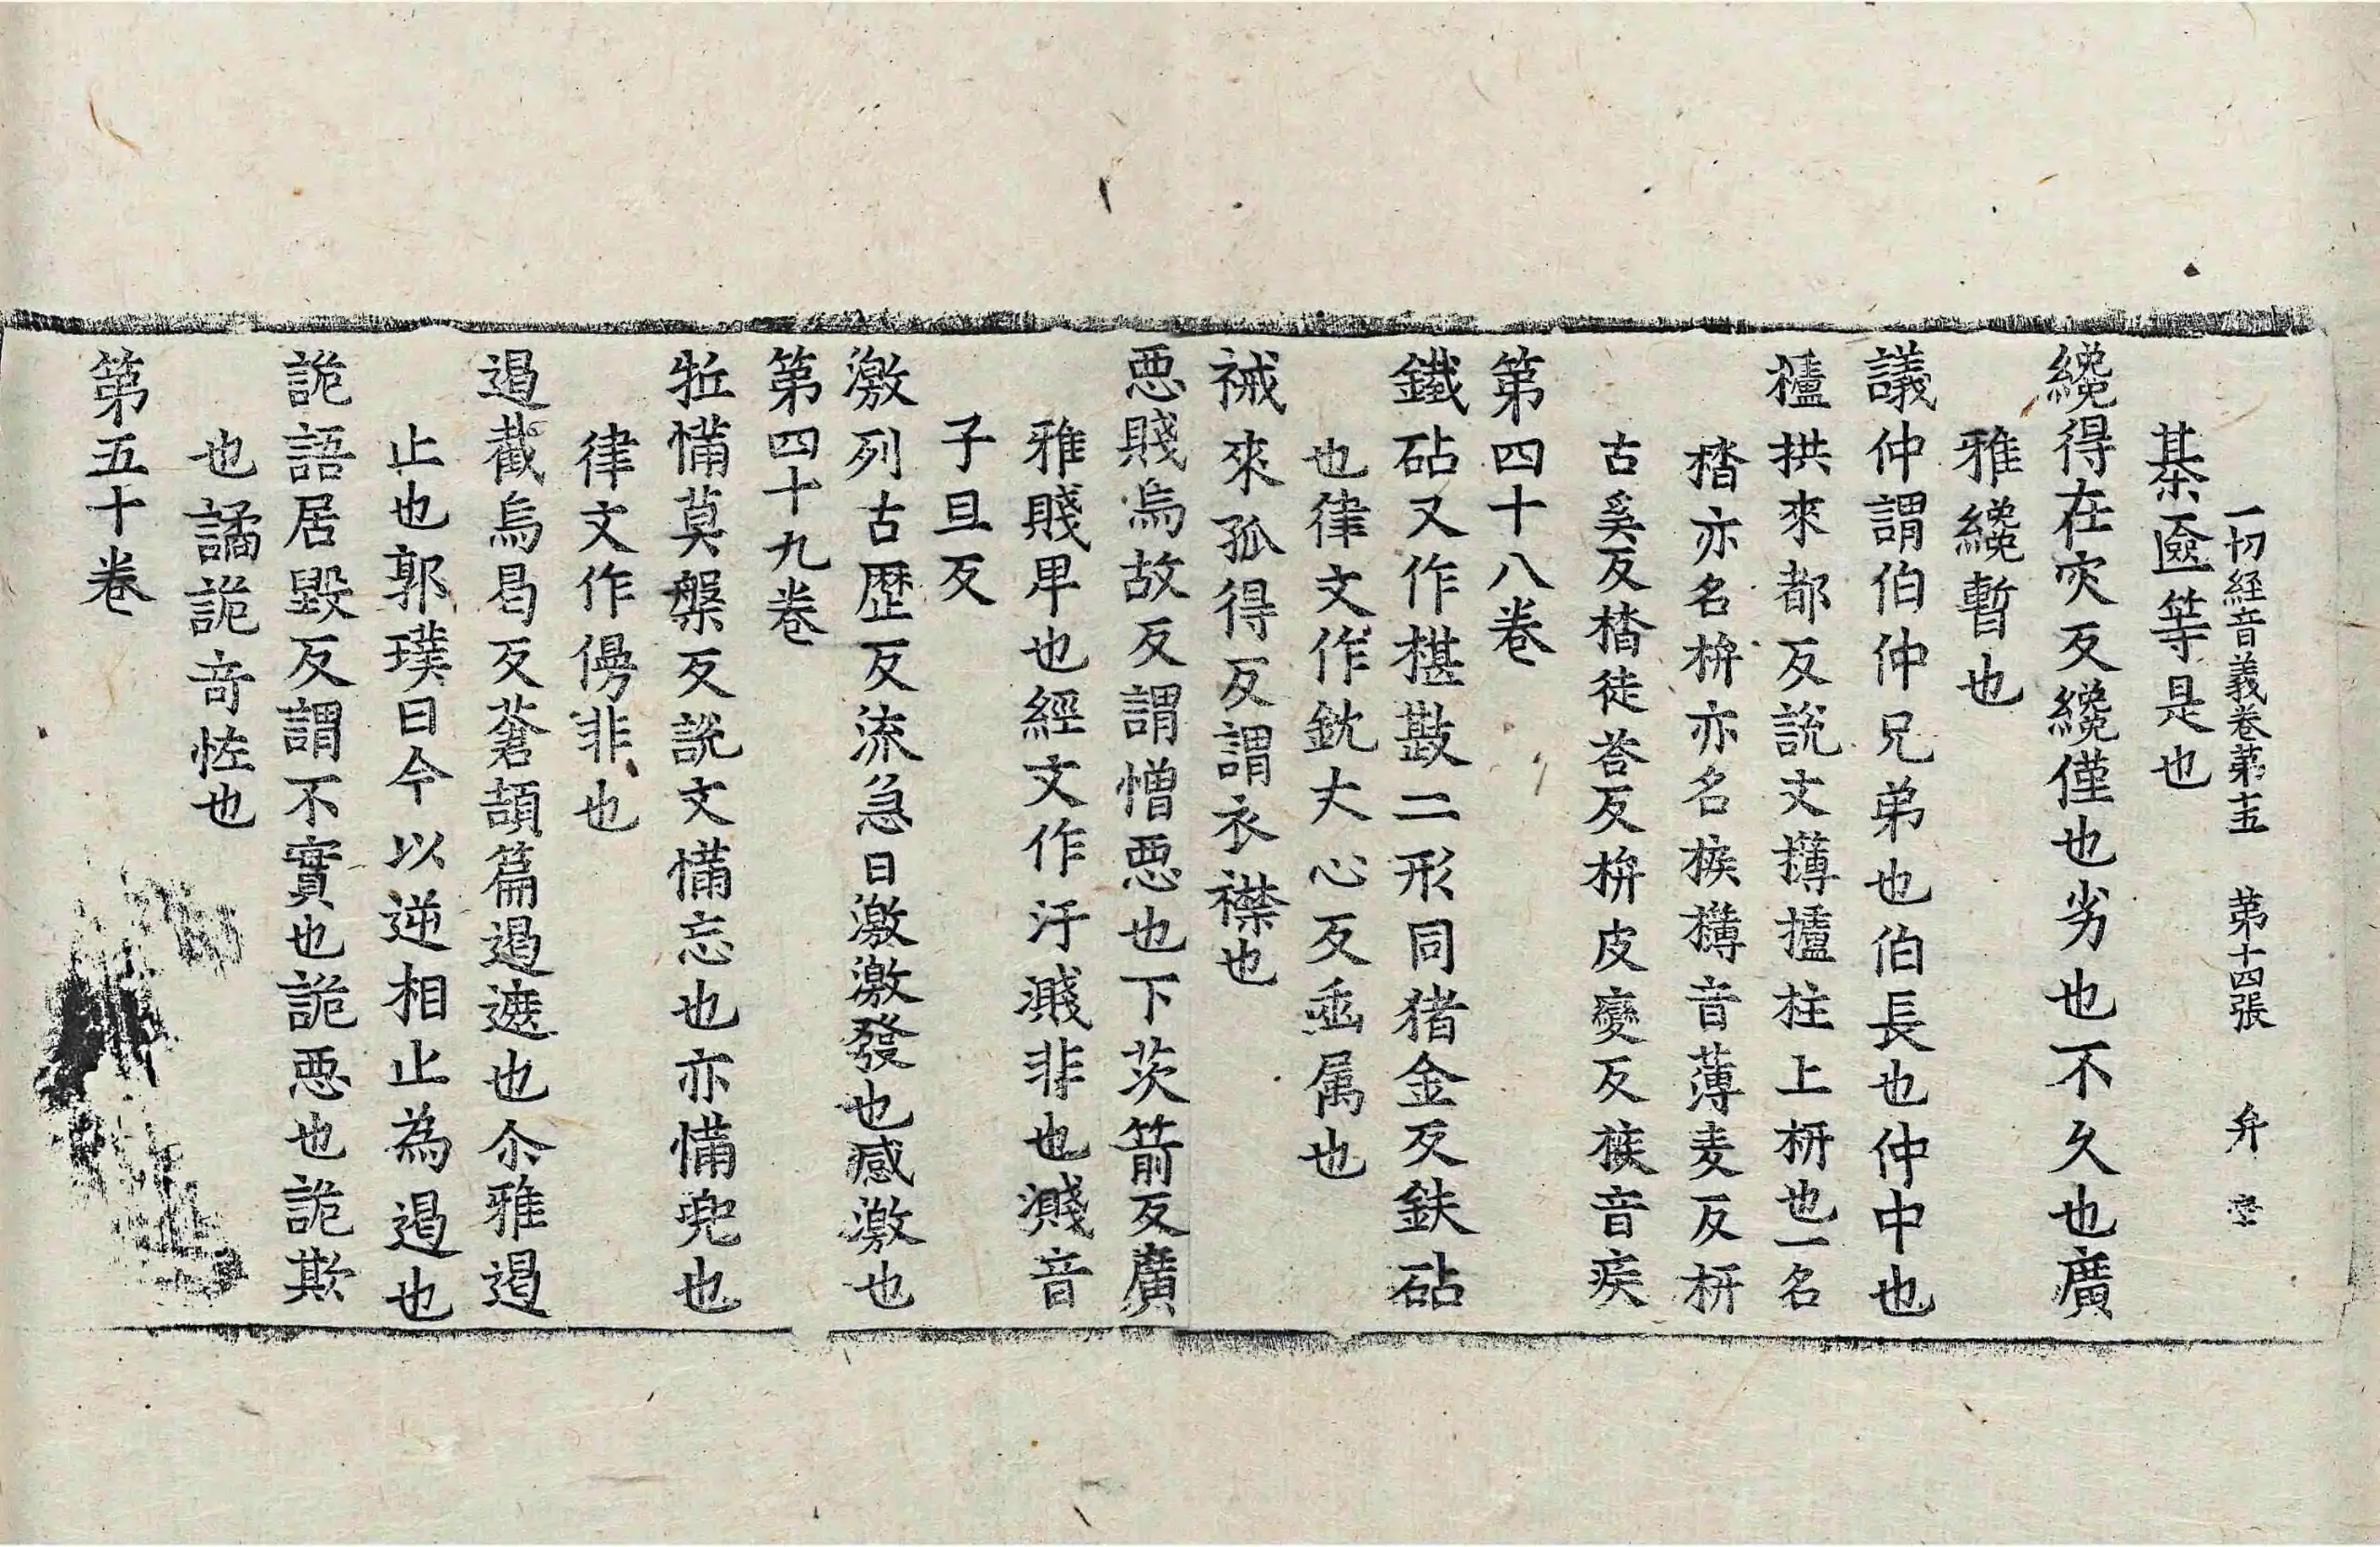 一切経音義卷苐十五　苐十四張　弁
棊匳等是也
纔得在灾反纔僅也劣也不久也廣
雅纔暫也
議仲謂伯仲兄弟也伯長也仲中也
櫨拱來都反說文欂櫨柱上枅也一名
㭼亦名枅亦名㮨欂音薄麦反枅
古奚反㭼徒荅反枅皮變反㮨音疾
第四十八卷
鐵砧又作椹㪛二形同猪金反鈇砧
也律文作鈂丈心反臿属也
裓來孤得反謂衣襟也
惡賤烏故反謂憎惡也下茨箭反廣
雅賤卑也經文作汙濺非也濺音
子旦反
激列古歷反流急曰激激發也感激也
第四十九卷
㸬㒼莫槃反說文㒼忘也亦㒼兜也
律文作僈非也
遏截烏曷反蒼頡篇遏遮也尒雅遏
止也郭璞曰今以逆相止為遏也
詭語居毀反謂不實也詭惡也詭欺
也譎詭竒恠也
第五十卷